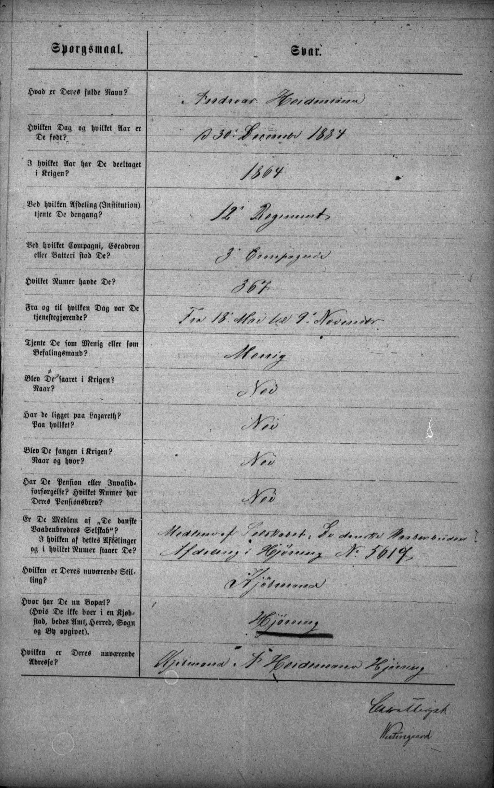 Spørgsmaal. Svar.
Hvad er Deres fulde Navn? Andreas Heidemann
Hvilken Dag og hvilket Aar er
De født? d 30' December 1834
I hvilket Aar har De deeltaget
i Krigen? 1864
Ved hvilken Afdeling (Institution)
tjente De dengang? 12' Regiment
Ved hvilket Compagni, Escadron
eller Batteri stod De? 3' Compagnie
Hvilket Numer havde De? 367
Fra og til hvilken Dag var De
tjenestegjørende? Fra 18' Mai til 9' November
Tjente De som Menig eller som
Befalingsmand? Menig
Blev De saaret i Krigen?
Naar? Nei
Har De ligget paa Lazareth?
Paa hvilket? Nei
Blev De fangen i Krigen?
Naar og hvor? Nei
Har De Pension eller Invalid-
forsørgelse? Hvilket Numer har
Deres Pensionsbrev? Nei
Er De Medlem af „De danske
Vaabenbrødres Selskab"? Medlem af Selskabet, De danske
I hvilken af dettes Afdelinger
og i hvilket Numer staaer De? Afdeling i Hjøring No. 5617
Hvilken er Deres nuværende Stil-
ling?
Hvor har De nu Bopæl?
(Hvis De ikke boer i en Kjøb-
stad, bedes Amt, Herred, Sogn
og By opgivet). Hjøring
Hvilken er Deres nuværende
Adresse? A Heidemann Hjøring